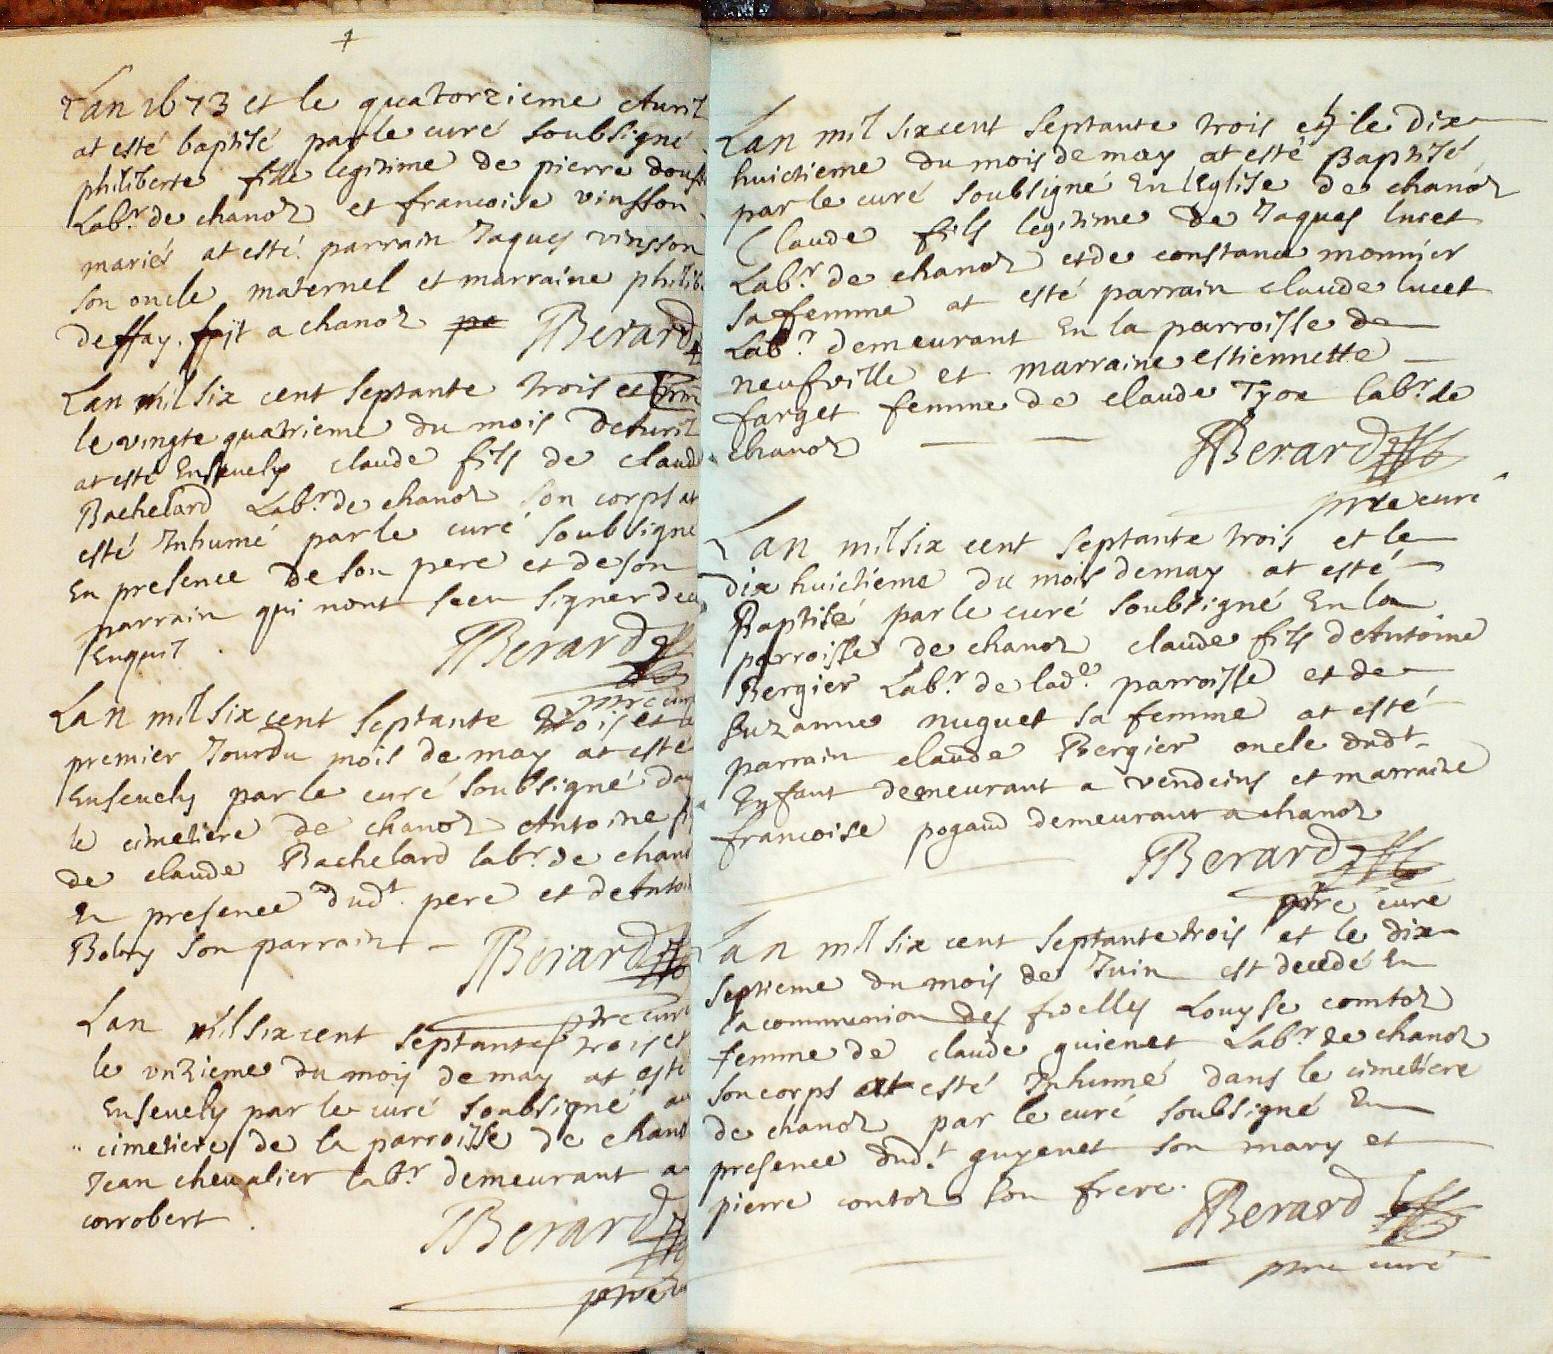 Lan 1673 et le quatorzieme Auril
at esté baptisé par le curé soubsigné
philiberte fille legitime de pierre
Lab.r de chanoz et francoise vinsson
mariés at esté parrain Jaques vinsson
son oncle maternel et marraine philib
deffay, fait a chanoz Berard
Lan mil six cent septante trois et
le vingte quatrieme du mois dAuril
at esté Enseuely claude fils de claud
Bachelard Lab.r de chanoz son corps at
esté Inhumé par le curé soubsigné
En presence de son pere et de son
parrain qui nont sceu signer de ce
Enquit . Berard
ptre cur
Lan mil six cent septante trois et le
premier Jour du mois de may at esté
Enseuely par le curé soubsigné dan
le cimetiere de chanoz Antoine fi
de claude Bachelard lab.r de chano
En presence dud.t pere et de Anto
son parrain - Berard
ptre curé
Lan mil six cent septante trois et
le vnzieme du moy de may at esté
Enseuely par le curé soubsigné au
cimetiere de la parroisse de chano
Jean cheualier lab.r demeurant a
corrobert . Berard
ptre cu
Lan mil six cent septante trois et le dix
huictieme du mois de may at esté Baptisé
par le curé soubsigné En lEglise de chanoz
Claude fils legitime de Jaques lucet
Lab.r de chanoz et de constance monnier
sa femme at esté parrain claude lucet
Lab.r demeurant En la parroisse de
neufville et marraine estiennette
farget femme de claude Tyox lab.r de
chanoz Berard
ptre curé
Lan mil six cent septante trois et le
dix huictieme du mois de may at esté
Baptisé par le curé soubsigné En la
parroisse de chanoz claude fils dAntoine
Bergier Lab.r de lad.e parroisse et de
Suzanne nuguet sa femme at esté
parrain claude Bergier oncle dud.t
Enfant demeurant a vendeins et marraine
francoise pogaud demeurant a chanoz
Berard
ptre curé
Lan mil six cent septante trois et le dix
septieme du mois de Juin est decedé En
la communion des fidelles Louyse comtoz
femme de claude guienet Lab.r de chanoz
son corps at esté Inhumé dans le cimetiere
de chanoz par le curé soubsigné En
presence dud.t guyenet son mary et
pierre contoz son frere. Berard
ptre curé